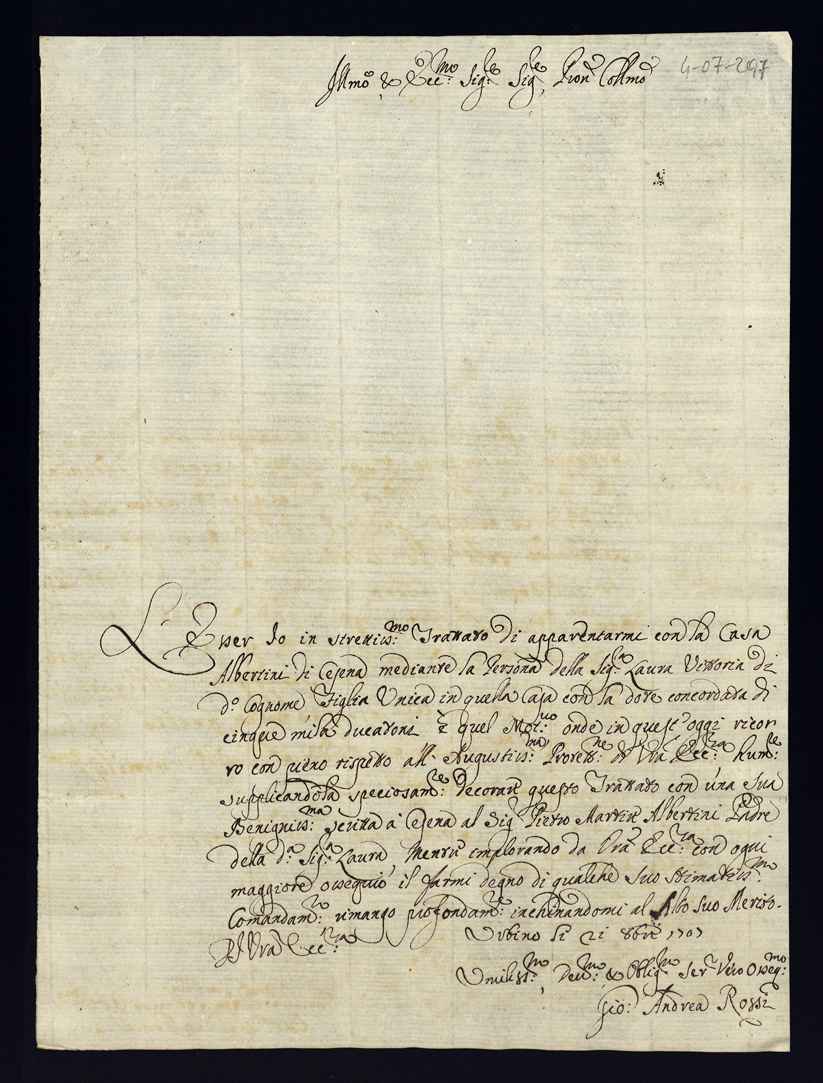 Illmo, & Ecc:mo Sig:re Sig:re, Pron: Collmo
4-07-297
L' Esser Io in strettiss:mo Trattato di apparentarmi con la Casa
Albertini di Cesena mediante la Persona della Sig:ra Laura Vittoria di
do: Cognome Figlia Unica in quella Casa con la dote concordata di
cinque mila ducatoni quel Mot:uo onde in quest' oggi ricor
ro con pieno rispetto all' Augustiss:ma Protett:ne di Vra Ecc:za hum:te
supplicandola speciosam:te decorare questo Trattato con una sua
Benigniss:ma scritta à Cesena al Sig:r Pietro Martire Albertini Padre
della da: Sig:ra Laura, Mentre implorando da Vra Ecc:za con ogni
maggiore ossequio il farmi degno di qualche suo stimatiss:mo
Comandam:to rimango profondam:te inchinandomi al Alto suo Merito.
Di Vra Ecc:za
Urbino li 21 8bre 1707
Umiliss:mo, Dev:mo & Oblig:mo Ser:r Vero Osseq:mo
Gio: Andrea Rossi